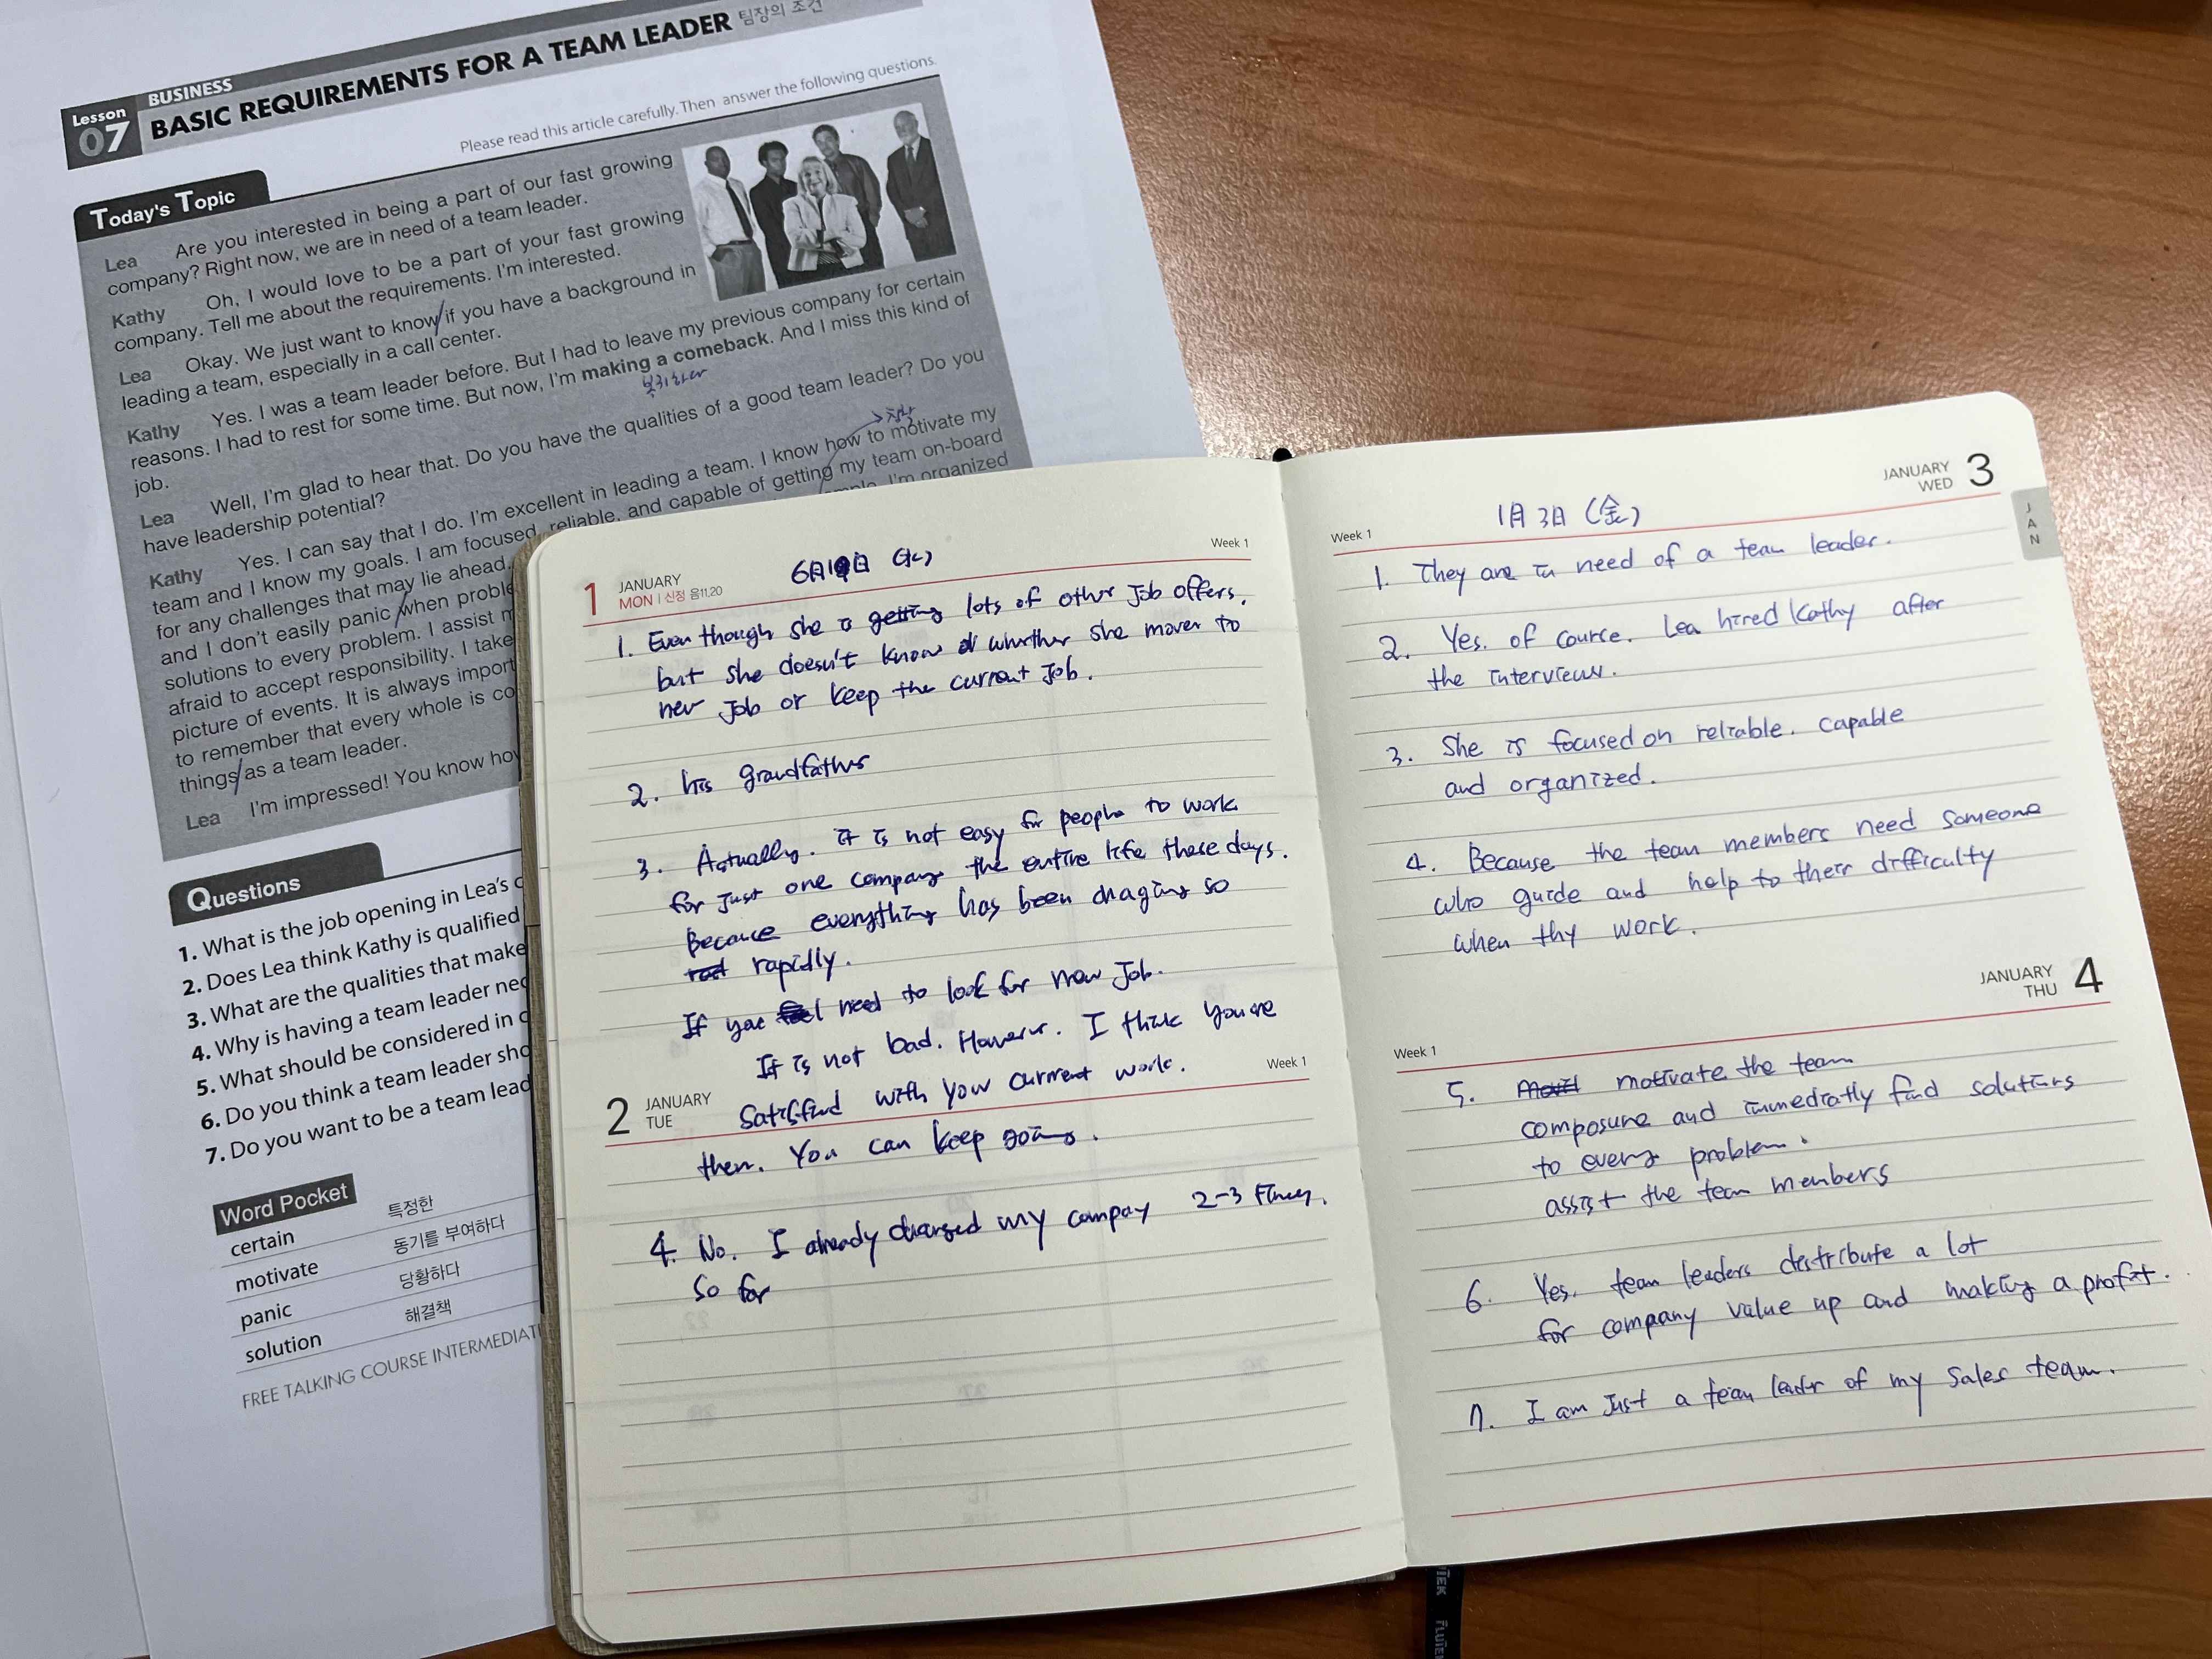 Lesson 07
BUSINESS
BASIC REQUIREMENTS FOR A TEAM LEADER 팀장의 조건
Please read this article carefully. Then answer the following questions.
Today's Topic
Lea Are you interested in being a part of our fast growing
company? Right now, we are in need of a team leader.
Kathy Oh, I would love to be a part of your fast growing
company. Tell me about the requirements. I'm interested.
Lea Okay. We just want to know if you have a background in
leading a team, especially in a call center.
Kathy Yes. I was a team leader before. But I had to leave my previous company for certain
reasons. I had to rest for some time. But now, I'm making a comeback. And I miss this kind of
job.
복귀하다
Lea Well, I'm glad to hear that. Do you have the qualities of a good team leader? Do you
have leadership potential?
Kathy Yes. I can say that I do. I'm excellent in leading a team. I know how to motivate my
team and I know my goals. I am focused, reliable, and capable of getting my team on-board
for any challenges that may lie ahead. I'm organized
and I don't easily panic when
solutions to every problem. I assist
afraid to accept responsibility. I take
picture of events. It is always
to remember that every whole is
things as a team leader.
Lea I'm impressed! You know
Questions
1. What is the job opening in Lea's
2. Does Lea think Kathy is qualified
3. What are the qualities that make
4. Why is having a team leader
5. What should be considered in
6. Do you think a team leader
7. Do you want to be a team
Word Pocket
certain 특정한
motivate 동기를 부여하다
panic 당황하다
solution 해결책
FREE TALKING COURSE
1 JANUARY
MON | 신정 음11.20
6月19日 (水)
Week 1
1. Even though she is getting lots of other Job offers,
but she doesn't know whether she mover to
new Job or keep the current Job.
2. his grandfather
3. Actually. it is not easy for people to work
for Just one company the entire life these days.
Because everything has been chaging so
rapidly.
If you need to look for new Job.
It is not bad. However. I think you are
Week 1
2 JANUARY
TUE
Satisfied with your current work.
then. You can keep going.
4. No. I already changed my compay 2-3 times.
So far
JANUARY
WED 3
JAN
Week 1
1月 3日 (金)
1. They are in need of a team leader.
2. Yes. of course. Lea hired Kathy after
the interview.
3. She is focused on reliable. capable
and organized.
4. Because the team members need someone
who guide and help to their difficulty
when thy work.
JANUARY
THU 4
Week 1
5. motivate the team
composure and immediatly find solutions
to every problem.
assist the team members
6. Yes. team leaders distribute a lot
for company value up and making a profit.
7. I am Just a team leader of my sales team.